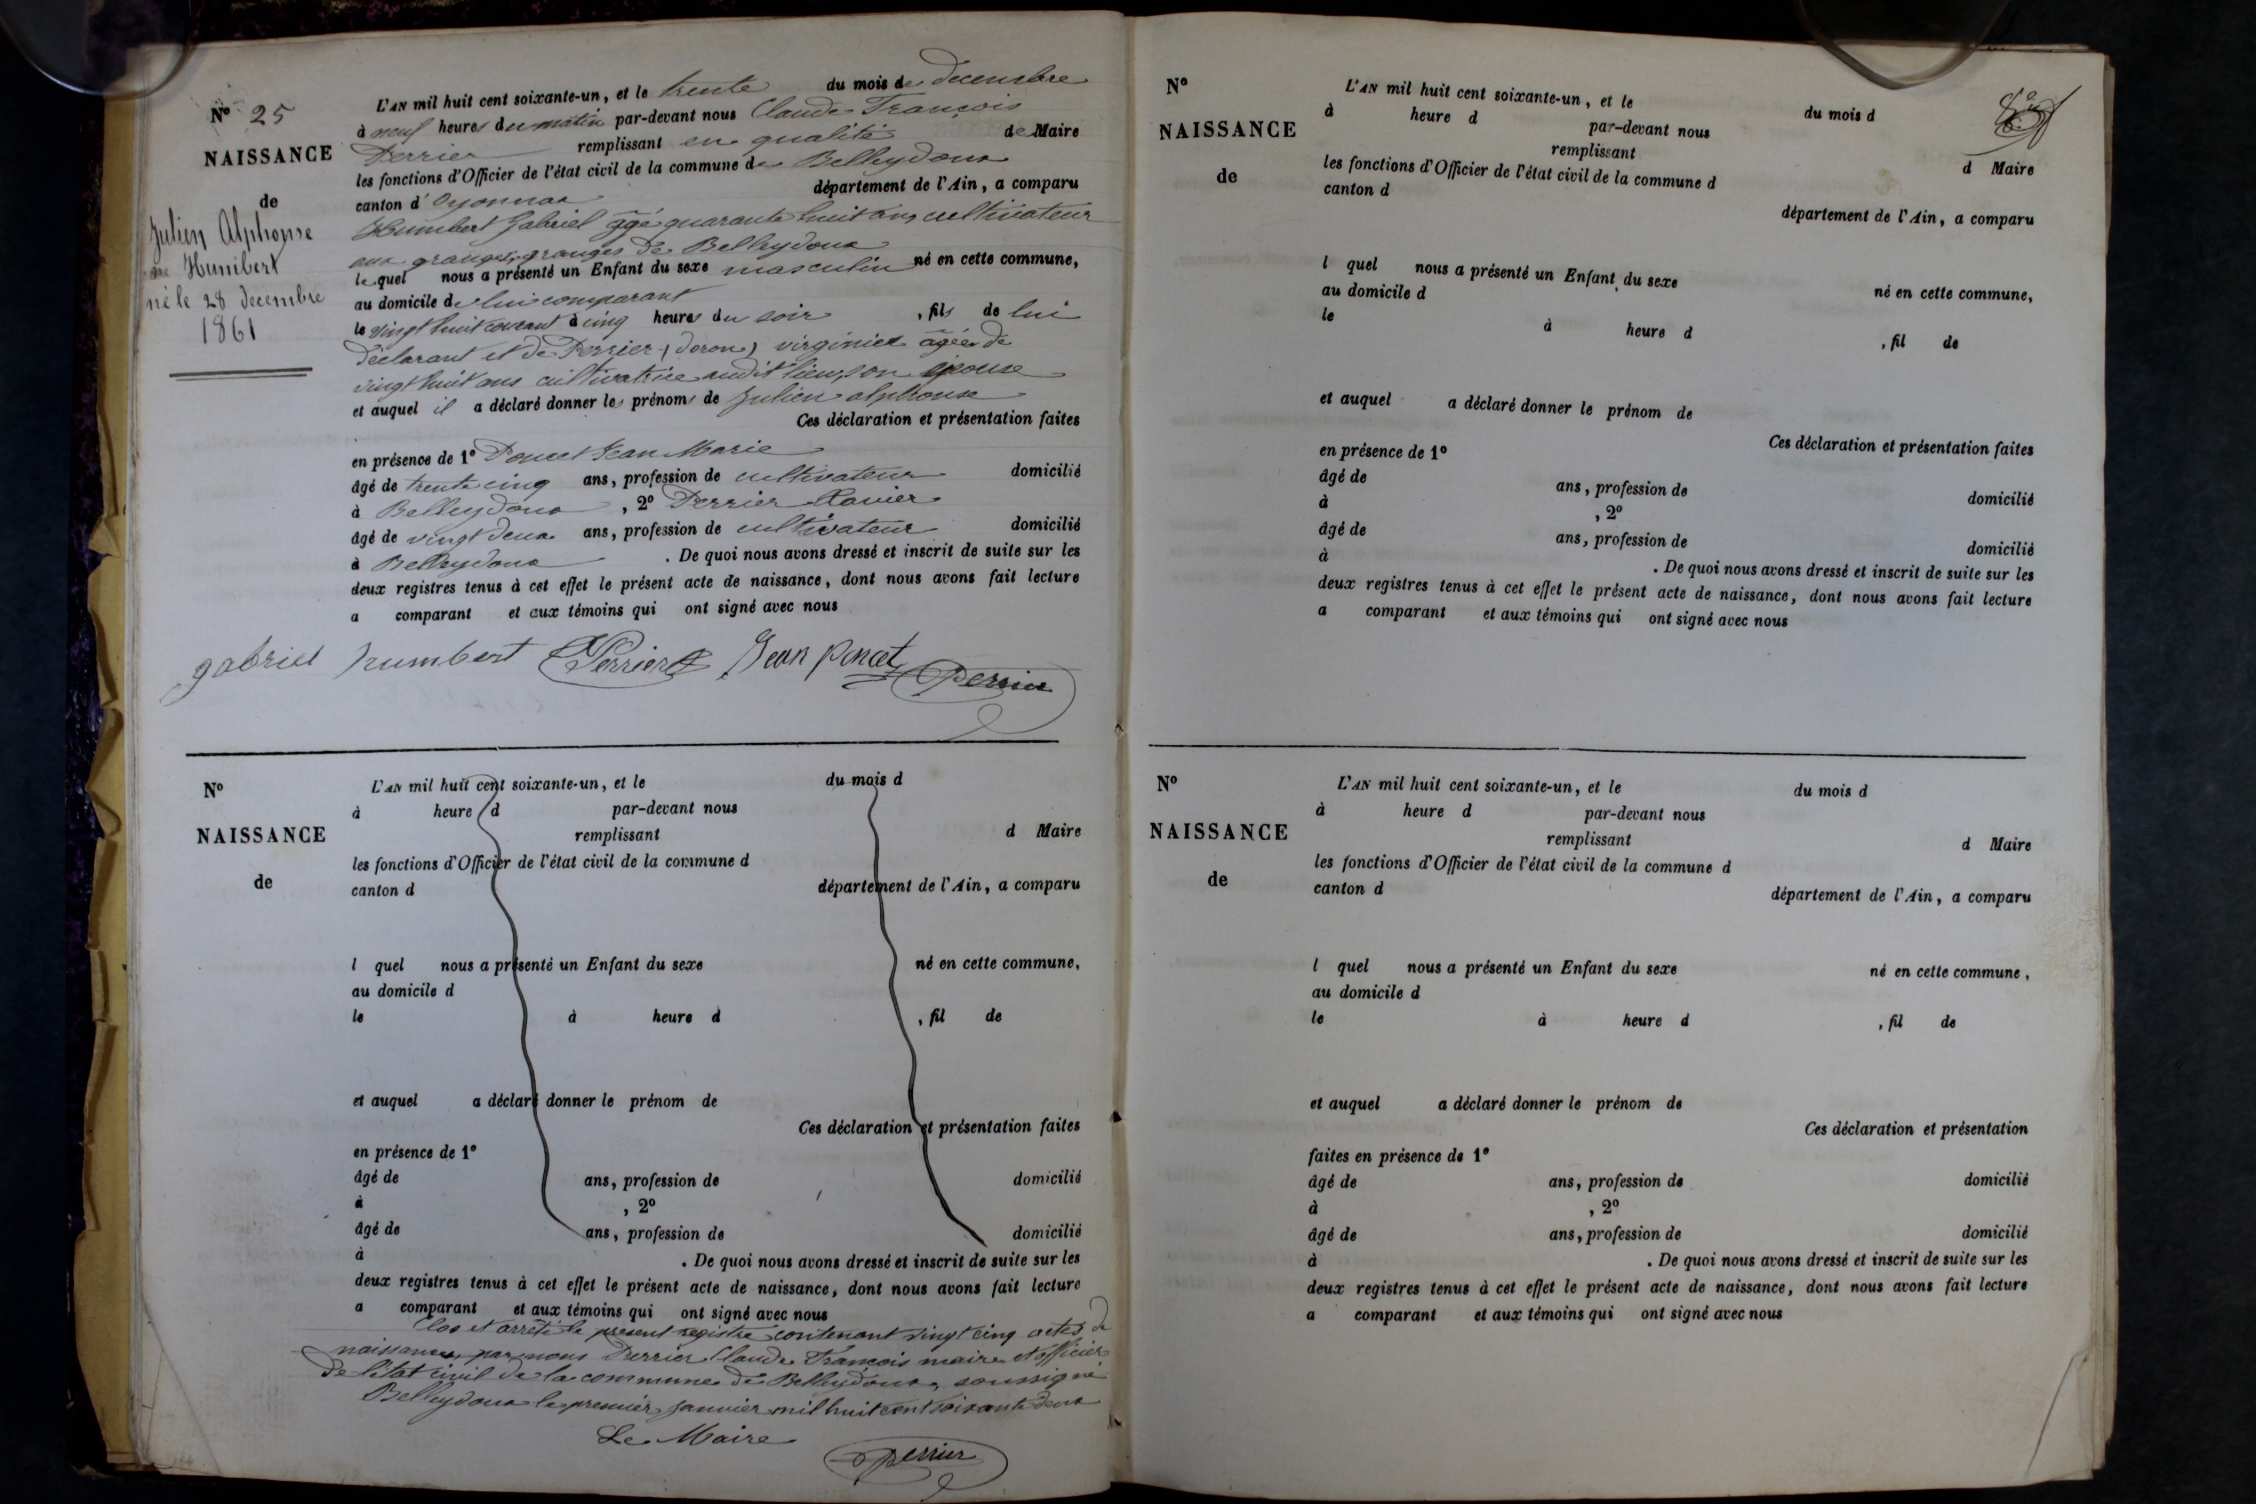 N° 25
NAISSANCE
de
Julien Alphonse
Humbert
né le 28 decembre
1861
L'AN mil huit cent soixante-un, et le trente du mois de decembre
à neuf heures du matin par-devant nous Claude François
Perrier remplissant en qualité de Maire
les fonctions d'Officier de l'état civil de la commune de Belleydoux
canton d'Oyonnax département de l'Ain, a comparu
Humbert Gabriel âgé quarante huit ans, cultivateur
aux granges, granges de Belleydoux
lequel nous a présenté un Enfant du sexe masculin né en cette commune,
au domicile de lui comparant
le vingt huit courant à cinq heures du soir, fils de lui
déclarant et de Perrier (doron) virginie âgée de
vingt huit ans cultivatrice audit lieu, son épouse
et auquel il a déclaré donner les prénoms de Julien alphonse
Ces déclaration et présentation faites
en présence de 1° Poncet Jean Marie
âgé de trente cinq ans, profession de cultivateur domicilié
à Belleydoux, 2° Perrier Xavier
âgé de vingt deux ans, profession de cultivateur domicilié
à Belleydoux. De quoi nous avons dressé et inscrit de suite sur les
deux registres tenus à cet effet le présent acte de naissance, dont nous avons fait lecture
a comparant et aux témoins qui ont signé avec nous
gabriel humbert Perrier Jean poncet Perrier
N°
NAISSANCE
de
L'AN mil huit cent soixante-un, et le du mois d
à heure d par-devant nous
remplissant d Maire
les fonctions d'Officier de l'état civil de la commune d
canton d département de l'Ain, a comparu
l quel nous a présenté un Enfant du sexe né en cette commune,
au domicile d
le à heure d , fil de
et auquel a déclaré donner le prénom de
Ces déclaration et présentation faites
en présence de 1°
âgé de ans, profession de domicilié
à , 2°
âgé de ans, profession de domicilié
à . De quoi nous avons dressé et inscrit de suite sur les
deux registres tenus à cet effet le présent acte de naissance, dont nous avons fait lecture
a comparant et aux témoins qui ont signé avec nous
Clos et arrêté le present registre contenant vingt cinq actes de
naissances, par nous Perrier Claude François maire et officier
de l'état civil de la commune de Belleydoux, soussigné
Belleydoux le premier janvier mil huit cent soixante deux
Le Maire
Perrier
N°
NAISSANCE
de
L'AN mil huit cent soixante-un, et le du mois d
à heure d par-devant nous
remplissant d Maire
les fonctions d'Officier de l'état civil de la commune d
canton d département de l'Ain, a comparu
l quel nous a présenté un Enfant du sexe né en cette commune,
au domicile d
le à heure d , fil de
et auquel a déclaré donner le prénom de
Ces déclaration et présentation faites
en présence de 1°
âgé de ans, profession de domicilié
à , 2°
âgé de ans, profession de domicilié
à . De quoi nous avons dressé et inscrit de suite sur les
deux registres tenus à cet effet le présent acte de naissance, dont nous avons fait lecture
a comparant et aux témoins qui ont signé avec nous
N°
NAISSANCE
de
L'AN mil huit cent soixante-un, et le du mois d
à heure d par-devant nous
remplissant d Maire
les fonctions d'Officier de l'état civil de la commune d
canton d département de l'Ain, a comparu
l quel nous a présenté un Enfant du sexe né en cette commune,
au domicile d
le à heure d , fil de
et auquel a déclaré donner le prénom de
Ces déclaration et présentation
faites en présence de 1°
âgé de ans, profession de domicilié
à , 2°
âgé de ans, profession de domicilié
à . De quoi nous avons dressé et inscrit de suite sur les
deux registres tenus à cet effet le présent acte de naissance, dont nous avons fait lecture
a comparant et aux témoins qui ont signé avec nous